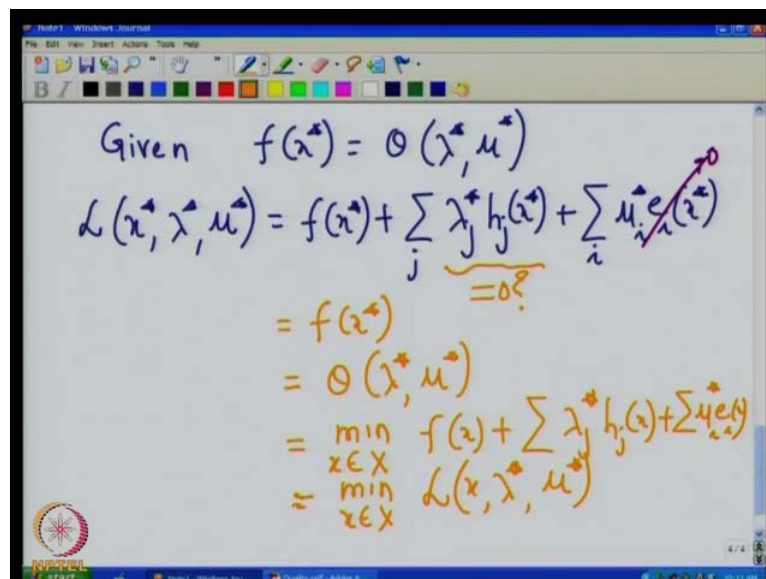 Note1 - Windows Journal
File Edit View Insert Actions Tools Help
B I
Given f(x*) = θ(λ*, μ*)
L(x*, λ*, μ*) = f(x*) + Σ_j λ_j* h_j(x*) + Σ_i μ_i* e_i(x*) → 0
= 0?
= f(x*)
= θ(λ*, μ*)
= min_{x∈X} f(x) + Σ λ_j* h_j(x) + Σ μ_i* e_i(x)
= min_{x∈X} L(x, λ*, μ*)
4/4
NPTEL
start